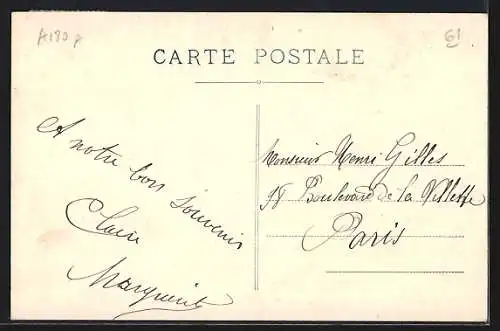 A180 A
61
CARTE POSTALE
A notre bon souvenir
Claire
Marguerite
Monsieur Henri Gilles
98 Boulevard de la Villette
Paris